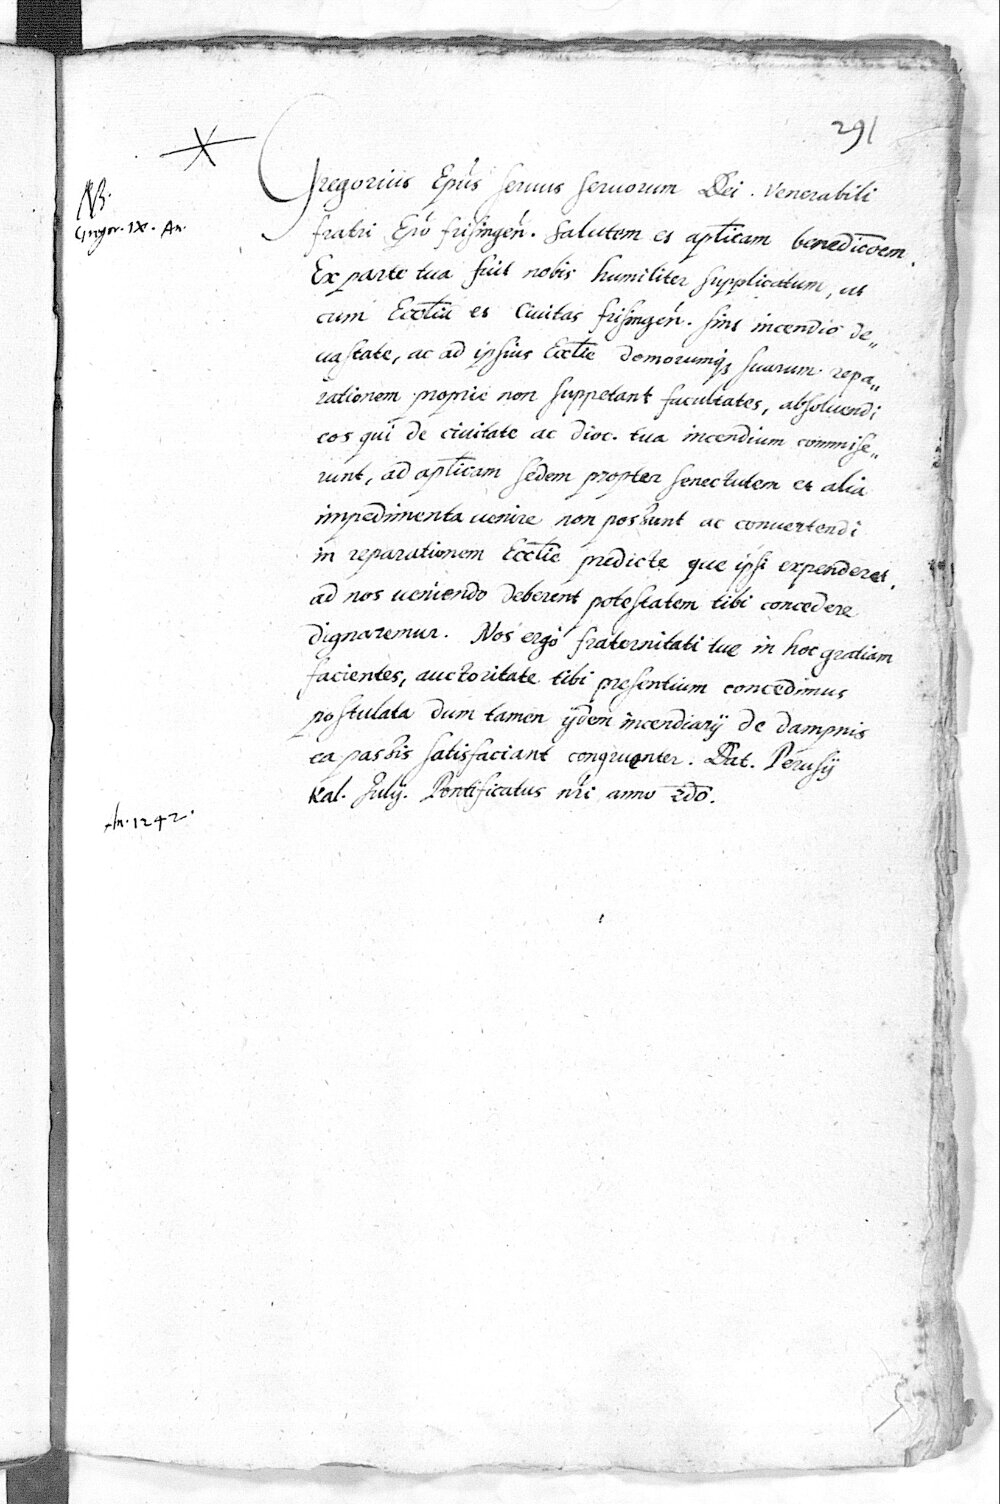 291
NB.
Gregor. IX. An.
Gregorius Ep̃us seruus seruorum Dei. Venerabili
fratri Ep̃o frisingeñ. salutem et ap̃licam benedic̃oem.
Ex parte tua fuit nobis humiliter supplicatum, ut
cum Eccl̃ia et Ciuitas frisingeñ. sint incendio de„
uastate, ac ad ipsius Eccl̃ie domorumq; suarum repa„
rationem proprie non suppetant facultates, absoluendi
eos qui de ciuitate ac dioc. tua incendium commise„
runt, ad ap̃licam sedem propter senectutem et alia
impedimenta uenire non possunt ac conuertendi
in reparationem Eccl̃ie predicte que ipsi expenderet,
ad nos ueniendo deberent potestatem tibi concedere
dignaremur. Nos ergo fraternitati tue in hoc gratiam
facientes, auctoritate tibi presentium concedimus
postulata dum tamen ijdem incendiarij de dampnis
ea passis satisfaciant congruenter. Dat. Perusij
Kal. Julij. Pontificatus nr̃i anno 2do.
An. 1242.